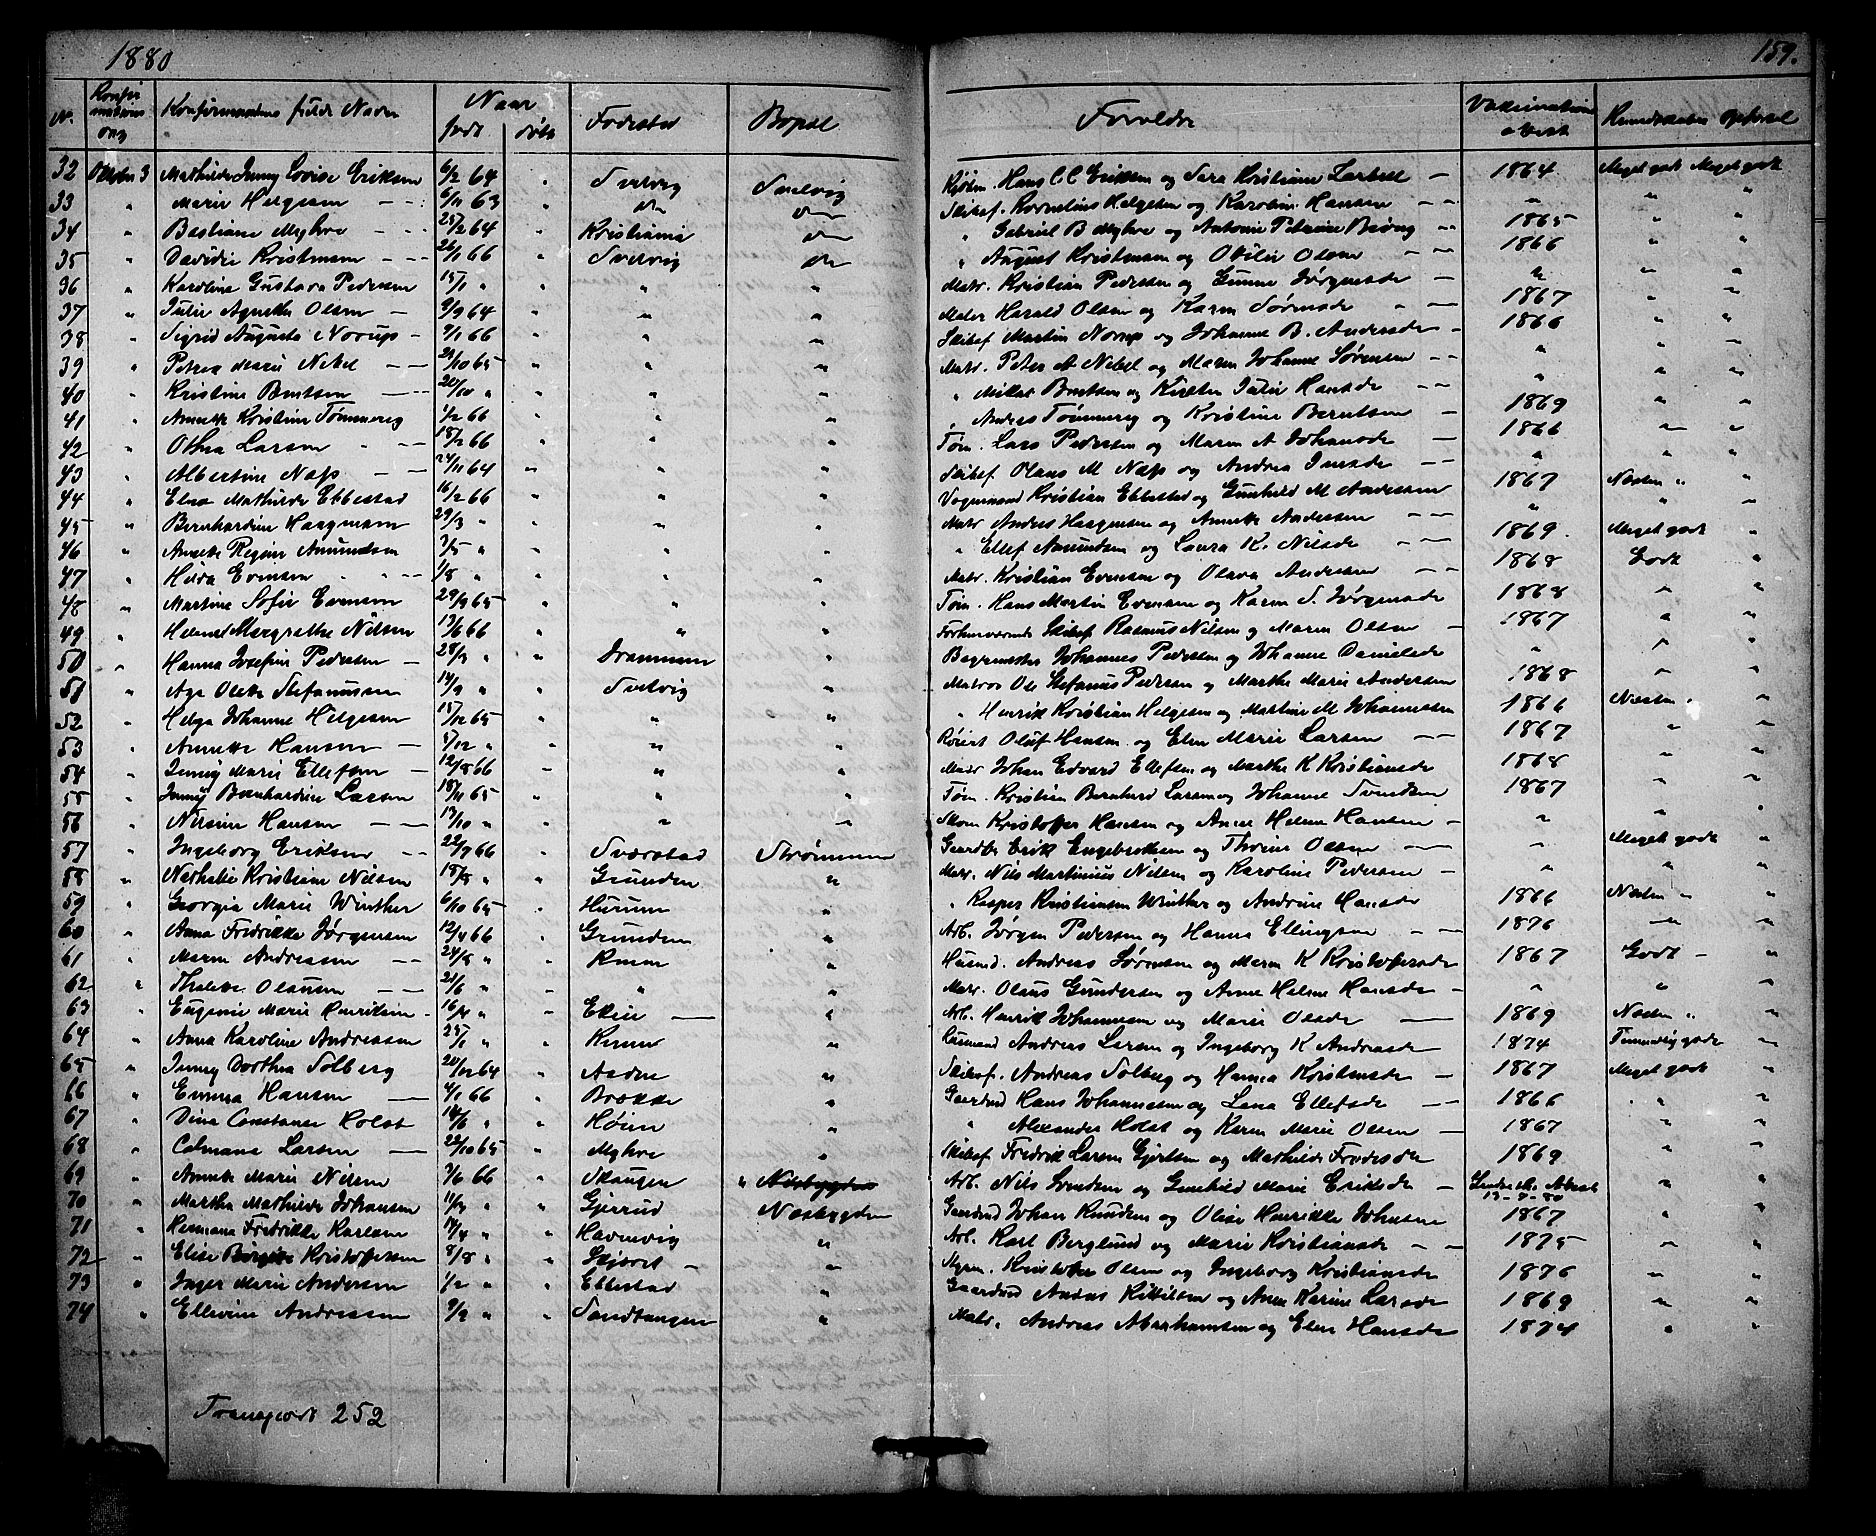 1880
159.
N. Konfirmations dag Konfirmandens fulde Navn Naar født døbt Fødested Bopæl Forældre Vaksinations attest Kundskaber Opførsel
32 Oktober 3 Mathilde Jenny Lovise Eriksen 6/2 64 " Svelvig Svelvig Hans C.C. Eriksen og Sara Kristiane — 1864 Meget godt Meget godt
33 " Marie Helgesen 6/11 63 " do do Skibsf. Kornelius Helgesen og Karoline Hansen " " "
34 " Bastiane Myhre 25/2 64 " Kristiania do " Gabriel B Myhre og Antonie Petrine 1865 " "
35 " Davidie Kristensen 26/1 66 " Svelvig do " August Kristensen og Otilie Olsen 1866 " "
36 " Karoline Gustava Pedersen 15/1 " " " " Matr. Kristian Pedersen og Gunne Jørgensde " " "
37 " Julie Agnethe Olsen 9/9 64 " " " Matr Harald Olsen og Karen 1867 " "
38 " Sigrid Augusta Norup 9/1 66 " " " Skibsf Martin Norup og Johanne B. Andersde 1866 " "
39 " Petrea Marie Nebel 21/10 65 " " " Matr. Peter A Nebel og Maren Johanne Sørensen " " "
40 " Kristine Berntsen 20/10 " " " " " Mikal Berntsen og Kirsten Julie Hansde " " "
41 " Annette Kristine Tømmereg 1/2 66 " " " " Anders Tømmereg og Kristine Berntsen 1869 " "
42 " Larsen 18/2 66 " " " Tøm. Lars Pedersen og Maren A Johansde 1866 " "
43 " Albertine Næss 24/11 64 " " " Skibsf Olaus M Næss og Andrea " " "
44 " Elna Mathilde Ebbestad 16/2 66 " " " Vognmand Kristian Ebbestad og Gunhild M Andersen 1867 Næsten " "
45 " Bernhardine Haagensen 29/3 " " " " Matr Anders Haagensen og Annette Andersen " "
46 " Annette Regine Amundsen 3/5 " " " " Ellef Amundsen og Laura K. Nilsde 1869 Meget godt "
47 " Hilda Evensen 1/8 " " " Matr. Kristian Evensen og Olava Andersen 1868 Godt "
48 " Martine Sofie Evensen 29/9 65 " " " Tøm. Hans Martin Evensen og Karen S. Jørgensde 1868 " "
49 " Margrethe Nilsen 13/6 66 " " " Forhenværende Skibsf Rasmus Nilsen og Maren Olsen 1867 " "
50 " Hanna Josefine Pedersen 28/3 " " Drammen " Johannes Pedersen og Johanne Danielsde " " "
51 " Aga Olette Stefanussen 14/9 " " Svelvig " Matros Ole Stefanus Pedersen og Marthe Marie Andersen 1868 " "
52 " Helga Johanne Helgesen 15/12 65 " " " " Henrik Kristian Helgesen og Martine M Johannesen 1866 Næsten " "
53 " Annette Hansen 5/12 " " " " Oluf Hansen og Elen Marie Larsen 1867 " "
54 " Jenny Marie Ellefsen 12/8 66 " " " Matr Johan Edvard Ellefsen og Marthe K Kristiansde 1868 " "
55 " Jenny Bernhardine Larsen 18/11 65 " " " Tøm. Kristian Bernhard Larsen og Johanne Svendsen 1867 " "
56 " Nilsine Hansen 13/10 " " " " Skom Kristoffer Hansen og Anne Helene Hansen " " "
57 " Ingeborg Eriksen 22/7 66 " Sværstad Strømmen Erik Engebrethsen og Thrine Olsen " Meget godt "
58 " Nathalie Kristiane Nilsen 15/8 " " Grunden " Matr. Nils Martinius Nilsen og Karoline Pedersen " " "
59 " Georgia Marie Winther 6/10 65 " Hurum " " Kristiansen Winther og Andrine Hansde 1866 Næsten " "
60 " Anna Fredrikke Jørgensen 12/4 66 " Grunden " Arb. Jørgen Pedersen og Hanna Ellingsen 1876 " "
61 " Maren Andreassen 24/8 " " " Husmd. Andreas Sørensen og Maren K Kristofersde 1867 Godt "
62 " Olausen 21/6 " " " " Matr. Olaus Gundersen og Anne Helene Hansde " " "
63 " Eugenie Marie Henriksen 16/4 " " " Arb. Henrik Johannesen og Marie Olsde 1869 Næsten " "
64 " Anna Karoline Andreassen 25/1 " " " Husmand Andreas Larsen og Ingeborg K Andreasde 1874 Temmelig godt "
65 " Jenny Dorthea Solberg 20/12 64 " " Skibsf. Andreas Solberg og Hanna Kristensde 1867 Meget godt "
66 " Emma Hansen 4/1 66 " Brække " Gaardmd Hans Johannesen og Lena Ellefsde 1866 " "
67 " Dina Constance Holst 14/6 " " Høien " " Alexander Holst og Karen Marie Olsen 1867 " "
68 " Larsen 22/10 65 " Myhre " Skibsf Fredrik Larsen Gjertsen og Mathilde 1869 " "
69 " Annette Marie Nilsen 3/6 66 " Skaugen " Nesbygden Arb. Nils Svendsen og Gunhild Marie Eriksde — Attest " "
70 " Martha Mathilde Johansen 11/3 " " Gjerrud Nesbygden Gaardmd Johan Knudsen og Olise Henrikke Johnsen 1867 " "
71 " Hermana Fredrikke Karlsen 17/4 " " Havnevig " Arb. Karl Berglund og Marie Kristiansde 1875 " "
72 " Elise Kristoffersen 8/8 " " " Kristoffer Olsen og Ingeborg Kristiansde 1876 " "
73 " Inger Marie Andersen 1/2 " " Ebbestad " Gaardmd Anders Kittilsen og Anne Karine Larsde 1869 " "
74 " Ellevine Andreassen 9/9 " " Sandtangen " Matr. Andreas Abrahamsen og Elen Hansde 1874 " "
Transport 252